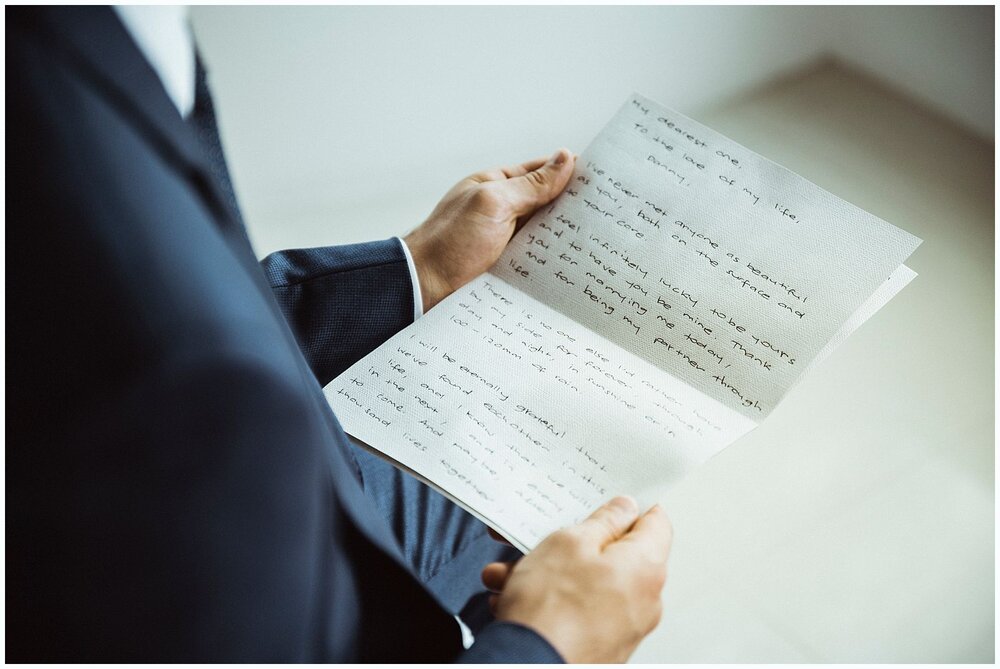 My dearest one,
To the love of my life,
Danny,
I've never met anyone as beautiful
as you, both on the surface and
to your core.
I feel infinitely lucky to be yours
and to have you be mine. Thank
you for marrying me today,
and for being my partner through
life.
There is no one else I'd rather have
by my side for forever, through
day and night, in sunshine or in
100 - 20mm of rain.
I will be eternally grateful that
we've found eachother in this
life, and I know that we will
in the next, and in every
to come. And maybe after
thousand lives together,